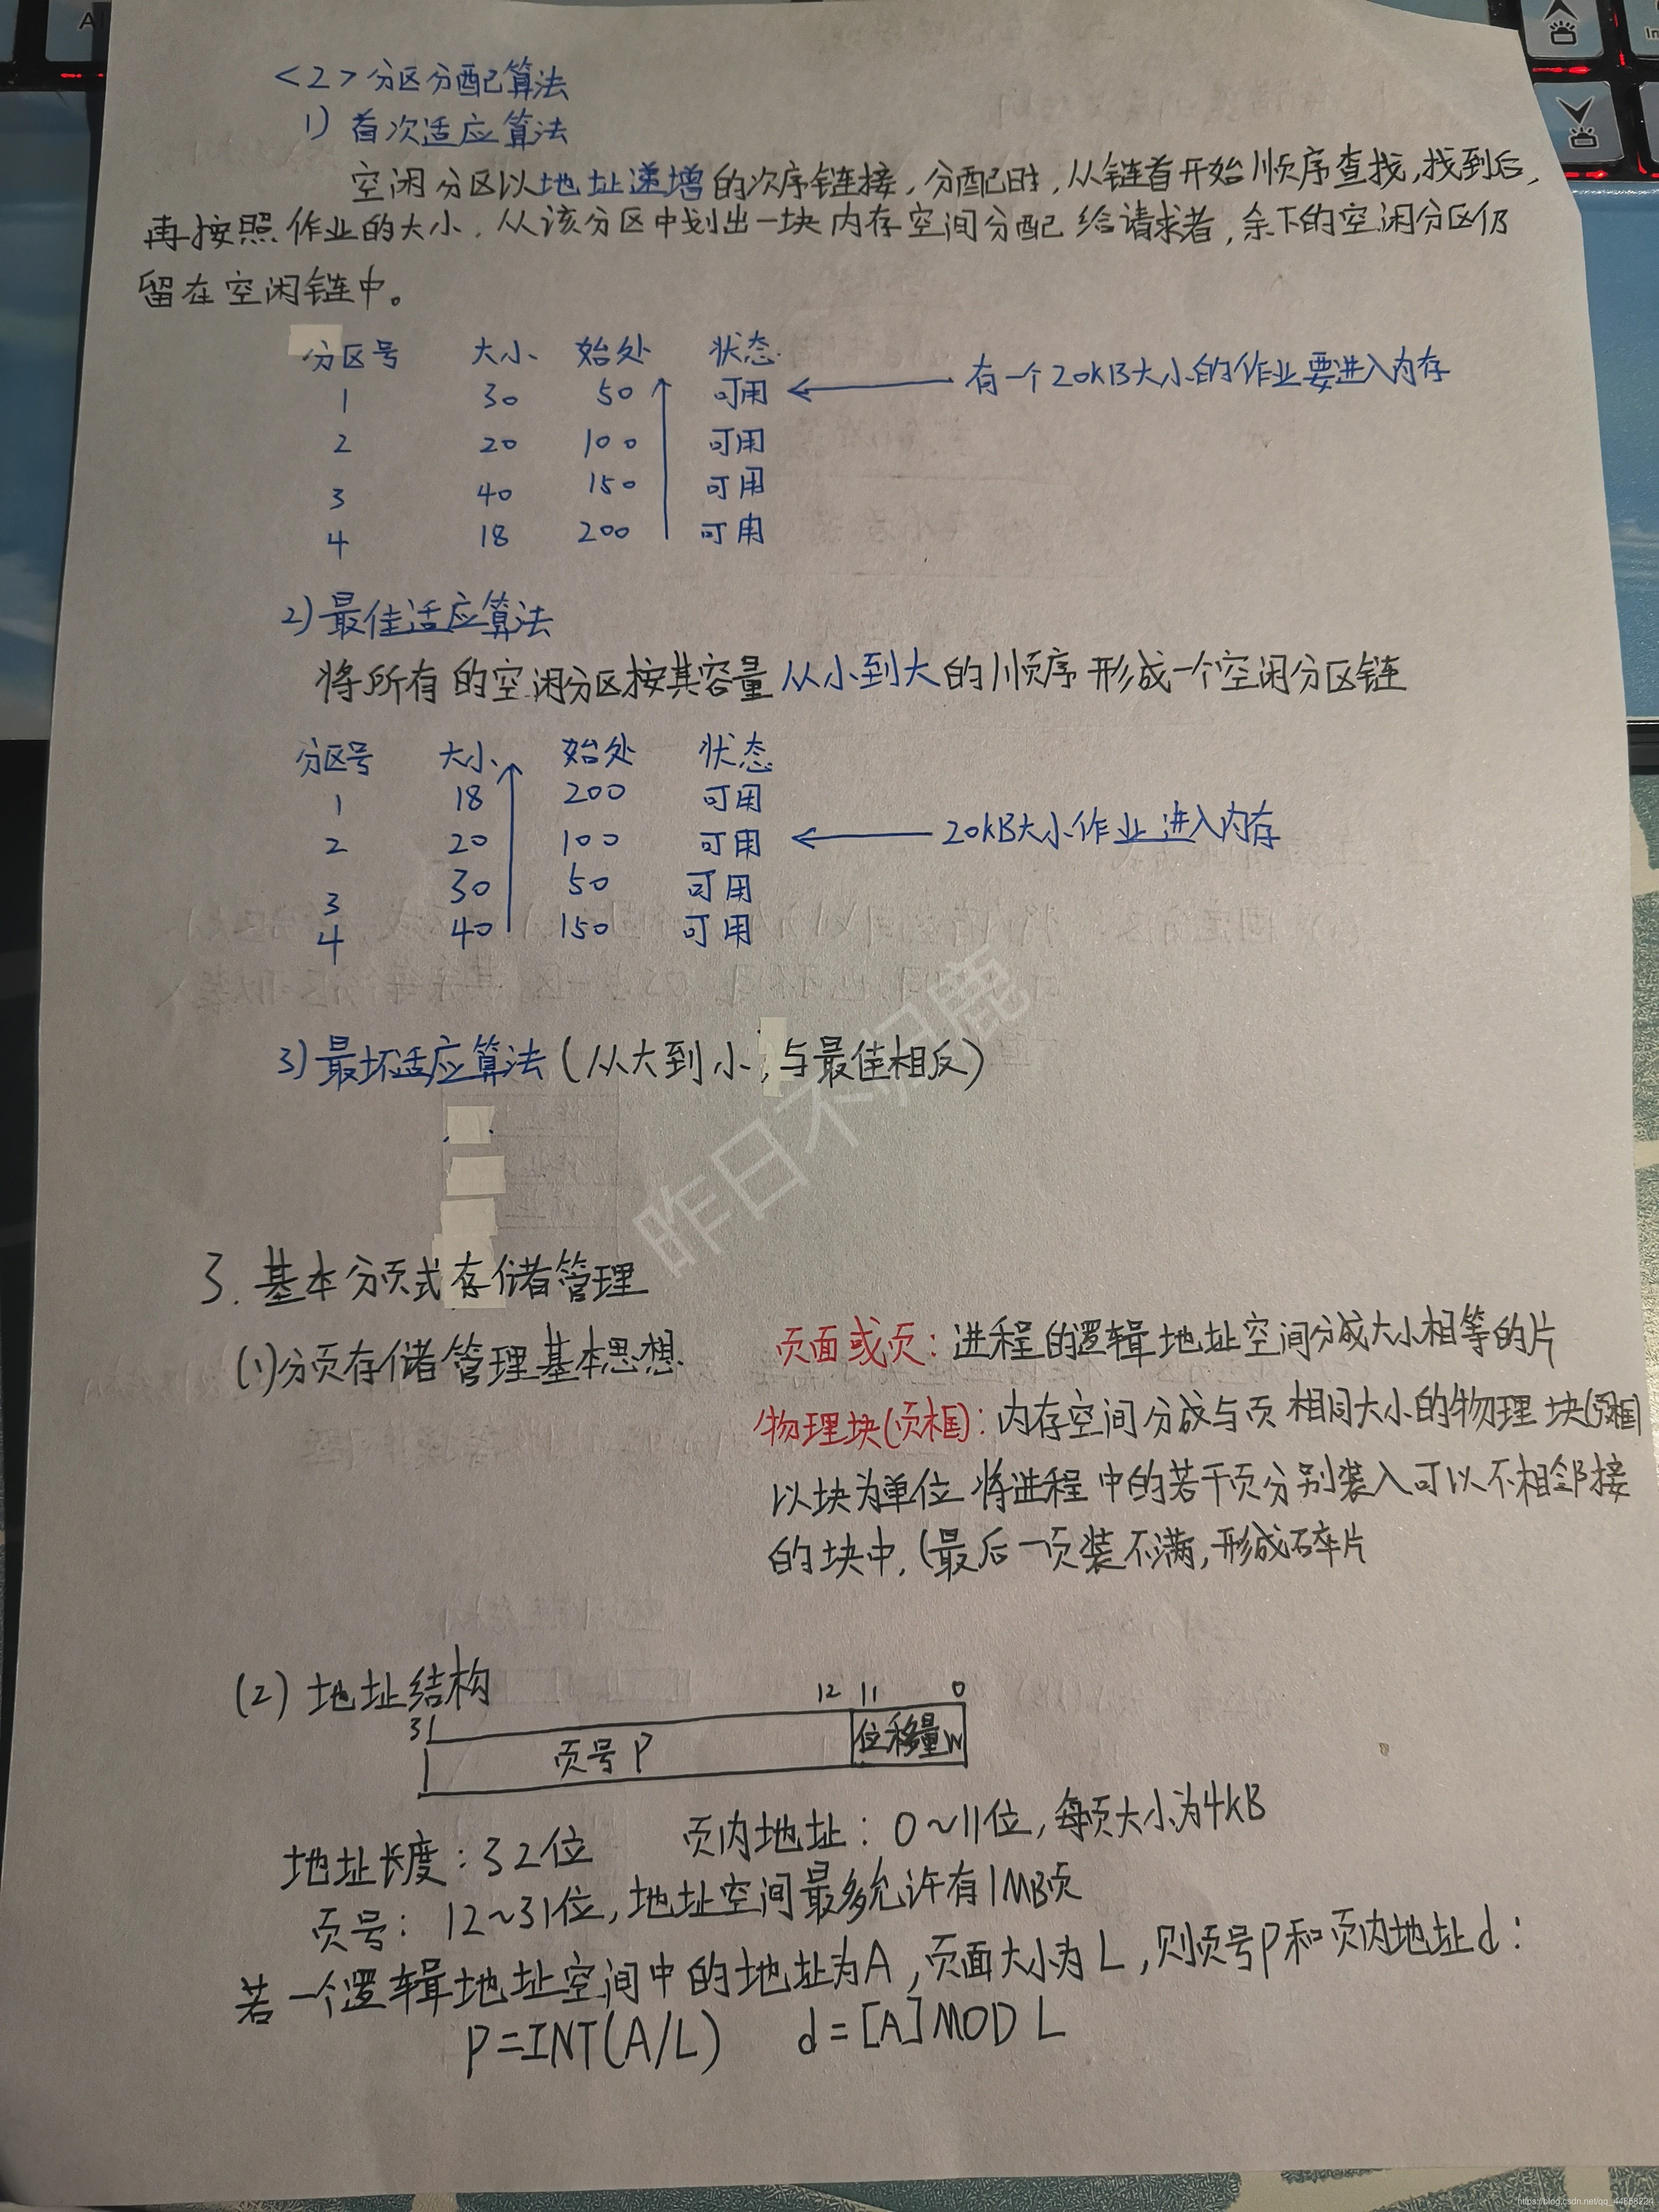 <2>分区分配算法
1) 首次适应算法
空闲分区以地址递增的次序链接,分配时,从链首开始顺序查找,找到后,
再按照作业的大小,从该分区中划出一块内存空间分配给请求者,余下的空闲分区仍
留在空闲链中。
分区号 大小 始处 状态
1 30 50 可用 有一个20KB大小的作业要进入内存
2 20 100 可用
3 40 150 可用
4 18 200 可用
2)最佳适应算法
将所有的空闲分区按其容量从小到大的顺序形成一个空闲分区链
分区号 大小 始处 状态
1 18 200 可用
2 20 100 可用 20KB大小作业进入内存
3 30 50 可用
4 40 150 可用
3)最坏适应算法(从大到小,与最佳相反)
昨日不归鹿
3.基本分页式存储管理
(1)分页存储管理基本思想.
页面或页:进程的逻辑地址空间分成大小相等的片
物理块(页框):内存空间分成与页相同大小的物理块(页框)
以块为单位将进程中的若干页分别装入可以不相邻接
的块中.(最后一页装不满,形成碎片
(2)地址结构
31 12 11 0
页号P 位移量W
地址长度:32位 页内地址:0~11位,每页大小为4KB
页号:12~31位,地址空间最多允许有1MB页
若一个逻辑地址空间中的地址为A,页面大小为L,则页号P和页内地址d:
P=INT(A/L) d=[A]MOD L